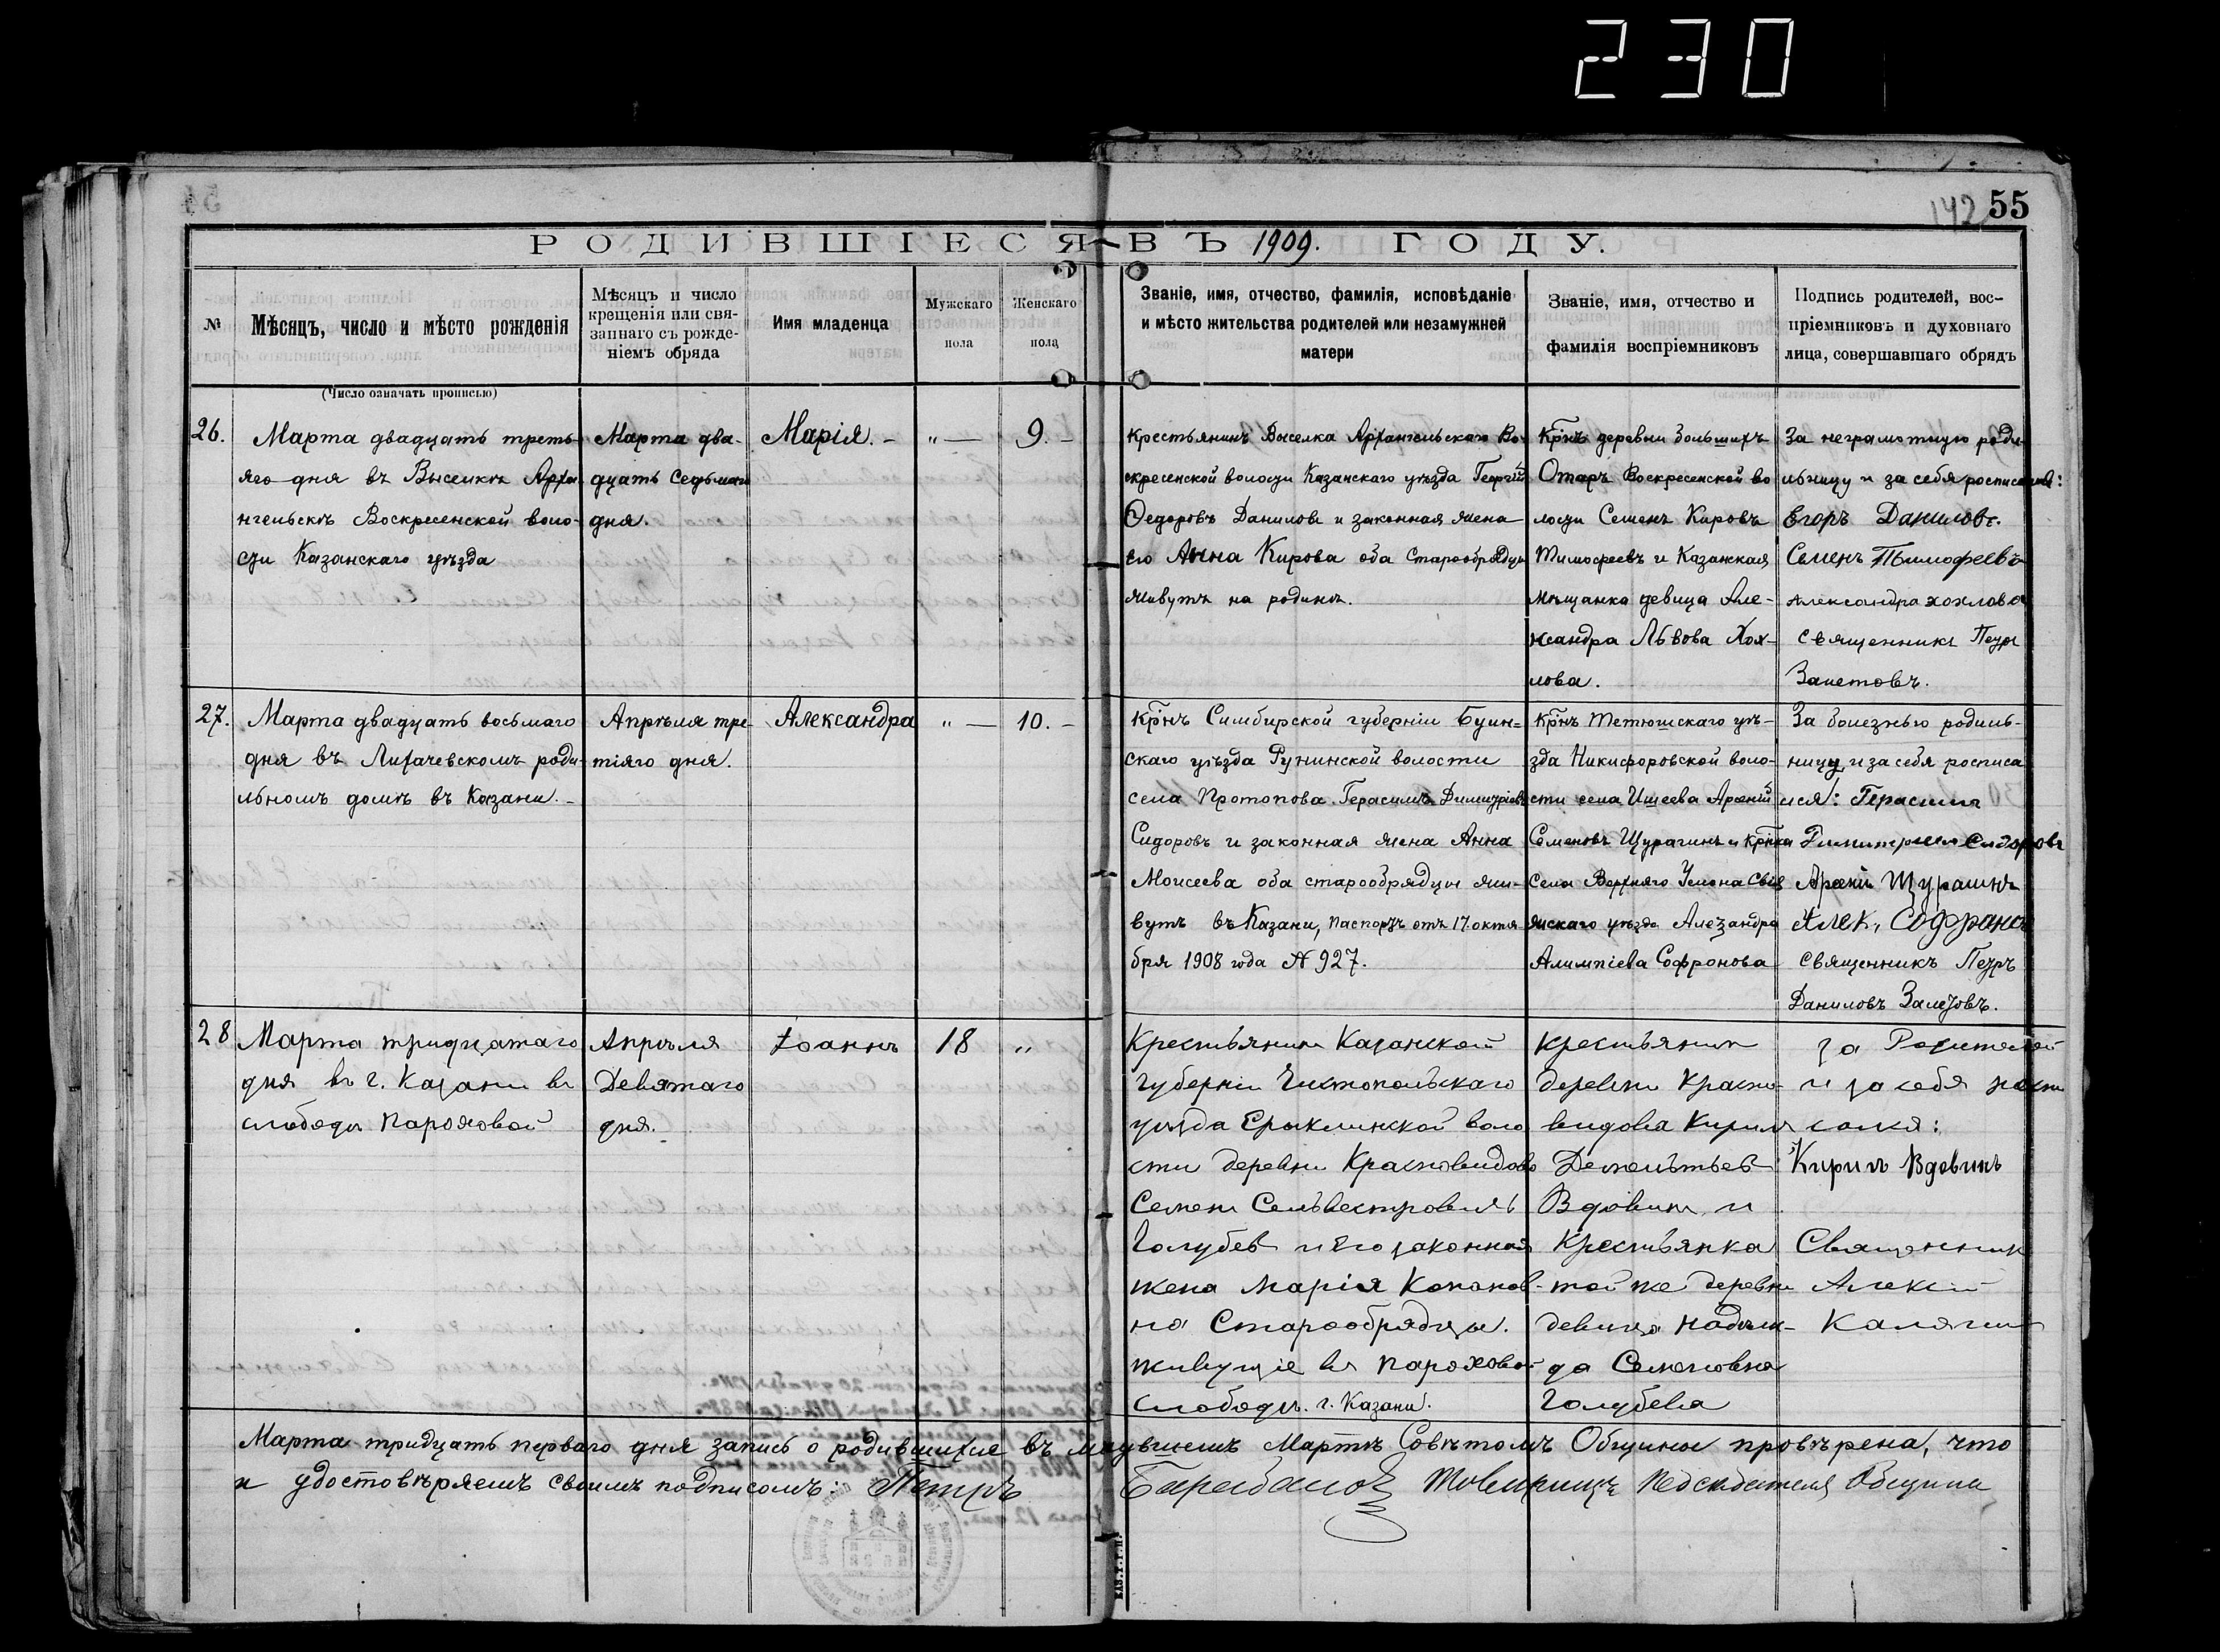 230
142 55
РОДИВШІЕСЯ ВЪ 1909. ГОДУ.
№
Мѣсяцъ, число и мѣсто рожденія
Мѣсяцъ и число
крещенія или свя-
заннаго съ рожде-
ніемъ обряда
Имя младенца
Мужскаго
пола
Женскаго
пола
Званіе, имя, отчество, фамилія, исповѣданіе
и мѣсто жительства родителей или незамужней
матери
Званіе, имя, отчество и
фамилія воспріемниковъ
Подпись родителей, вос-
пріемниковъ и духовнаго
лица, совершавшаго обрядъ
(Число означать прописью)
26.
Марта двадцать треть-
яго дня въ Выселкѣ Арха-
нгельскѣ Воскресенской воло-
сти Казанскаго уѣзда
Марта два-
дцать седьмаго
дня.
Марія. -
" —
9. -
Крестьянинъ Выселка Архангельскаго Во-
скресенской волости Казанскаго уѣзда Георгій
Ѳедоровъ Даниловъ и законная жена
его Анна Кирова оба старообрядцы
живутъ на родинѣ.
Кр͠нъ деревни Большихъ
Отаръ Воскресенской во
лости Семенъ Кировъ
Тимофеевъ и Казанская
мѣщанка девица Але-
ксандра Львова Хох-
лова.
За неграмотную роди-
льницу и за себя росписался:
Егоръ Даниловъ.
Семенъ Тимофеевъ
Александра хохлова
Священникъ Петръ
Залетовъ.
27.
Марта двадцать восьмаго
дня въ Лихачевскомъ роди-
льномъ домѣ въ Казани. -
Апрѣля тре-
тіяго дня.
Александра
" —
10. -
Кр͠нъ Симбирской губерніи Буин=
скаго уѣзда Рунинской волости
села Протопова Герасимъ Димитріевъ
Сидоровъ и законная жена Анна
Моисеева оба старообрядцы жи-
вутъ въ Казани, паспортъ отъ 17 октя-
бря 1908 года № 927.
Кр͠нъ Тетюшскаго уѣ-
зда Никифоровской воло-
сти села Ишеева Арсеній
Семеновъ Щурагинъ и кр͠нка
Села Верхняго Услона Свія
жскаго уѣзда Александра
Алимпіева Софронова
За болезнью родиль-
ницу и за себя росписа
лся: Герасимъ
Димитриевъ Сидоровъ
Арсеній Щурагинъ
Алек. Софранова
Священникъ Петръ
Даниловъ Залетовъ.
28
Марта тридцатаго
дня въ г. Казани въ
слободѣ Пароховой
Апрѣля
Девятаго
дня.
Іоаннъ
18
"
Крестьянинъ Казанской
губерніи Чистопольскаго
уѣзда Ерыклинской воло
сти деревни Красновидово
Семенъ Сельвестровичъ
Голубев и его законная
жена Марія Конанов-
на Старообрядцы.
живущіе въ Пароховой
слободѣ. г. Казани.
Крестьянин
деревни Красно-
видова Кирил
Дементьев
Вдовинъ и
Крестьянка
той же деревни
девица Надеж-
да Семеновна
Голубева
за Родителей
и за себя роспи
сался:
Кирилъ Вдовинъ
Священник
Алексій
Калягин
Марта тридцать перваго дня запись о родившихся въ минувшемъ Мартѣ Совѣтомъ Общины провѣрена, что
и удостовѣряемъ своимъ подписомъ: Петръ
Товарищъ